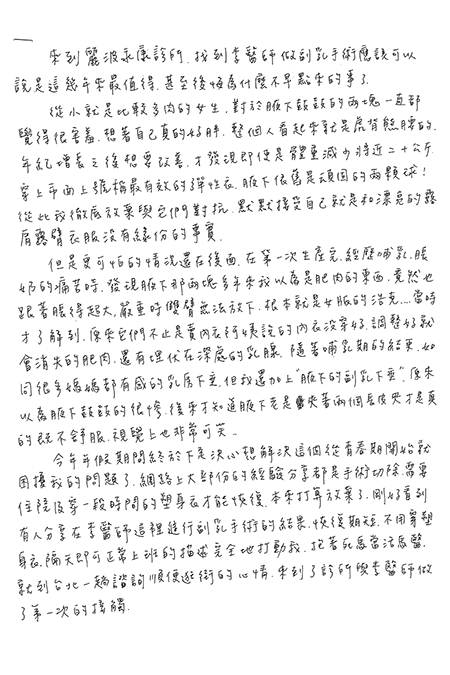 來到麗波永康診所,找到李醫師做副乳手術應該可以
說是這幾年來最值得,甚至後悔為什麼不早點來的事了.
從小就是比較多肉的女生,對於腋下鼓鼓的兩塊一直都
覺得很害羞,想著自己真的好胖,整個人看起來就是虎背熊腰的.
年紀增長之後想要改善,才發現即使是體重減少將近二十公斤,
穿上市面上號稱最有效的彈性衣,腋下依舊是頑固的兩顆球!
從此我徹底放棄與它們對抗,默默接受自己就是和漂亮的露
肩露臂衣服沒有緣份的事實.
但是更可怕的情況還在後面,在第一次生產完,經歷哺乳,脹
奶的痛苦時,發現腋下那兩塊多年來我以為是肥肉的東西,竟然也
跟著脹得超大,嚴重時雙臂無法放下,根本就是女版的浩克....當時
才了解到,原來它們不止是賣內衣阿姨說的內衣沒穿好,調整好就
會消失的肥肉,還有埋伏在深處的乳腺.隨著哺乳期的結束,如
同很多媽媽都有感的乳房下垂,但我還加上"腋下的副乳下垂",原來
以為腋下鼓鼓的很慘,後來才知道腋下老是夾著兩個長皮夾才是真
的既不舒服,視覺上也非常可笑.
今年年假期間終於下定決心想解決這個從青春期開始就
困擾我的問題了.網路上大部份的經驗分享都是手術切除,需要
住院及穿一段時間的塑身衣才能恢復,本來打算放棄了,剛好看到
有人分享在李醫師這裡進行副乳手術的結果,恢復期短,不用穿塑
身衣,隔天即可正常上班的描述完全地打動我,抱著死馬當活馬醫,
就到台北一趟諮詢順便逛街的心情,來到了診所與李醫師做
了第一次的接觸.